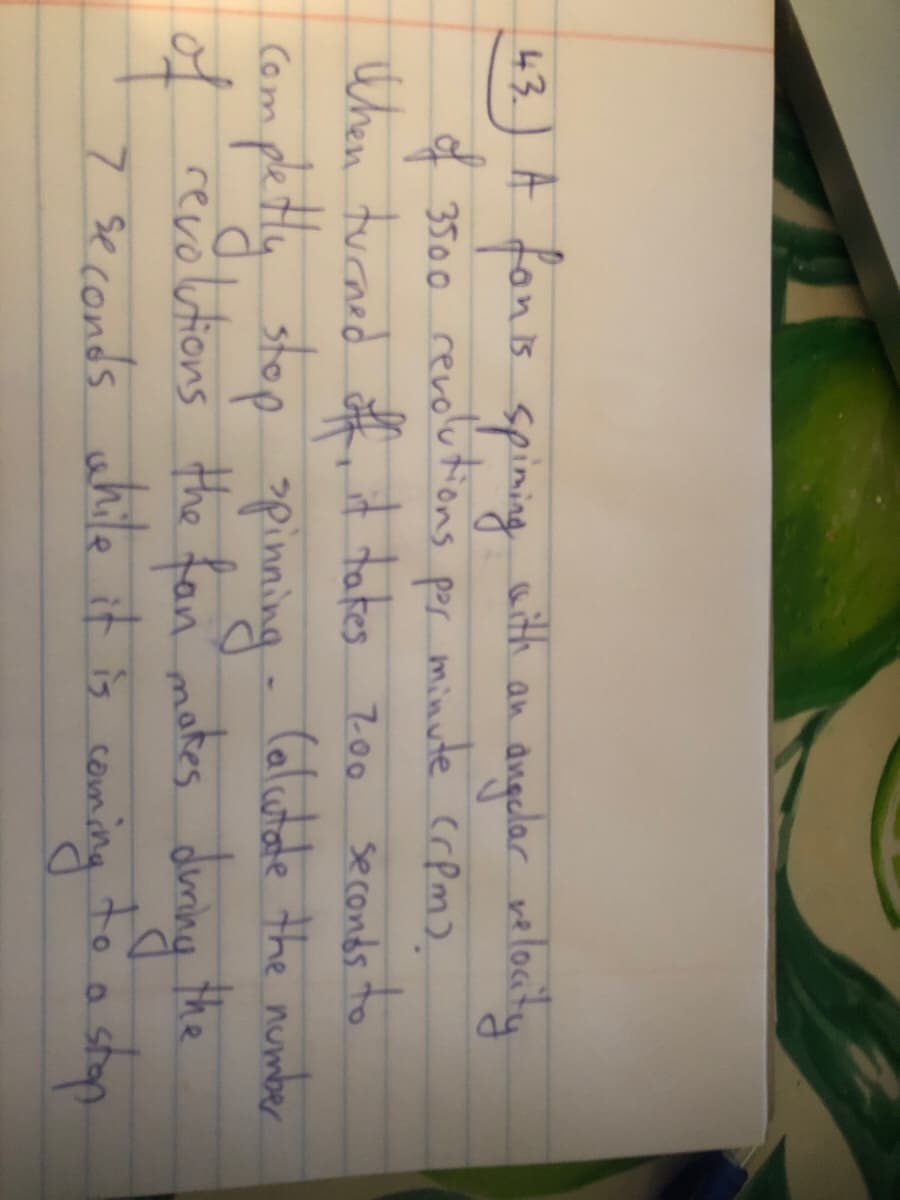 43.) A fan is spining with an angular velocity
of 3500 revolutions per minute (rpm).
When turned off, it takes 7.00 seconds to
completly stop spinning. Calculate the number
of revolutions the fan makes during the
7 seconds while it is coming to a stop